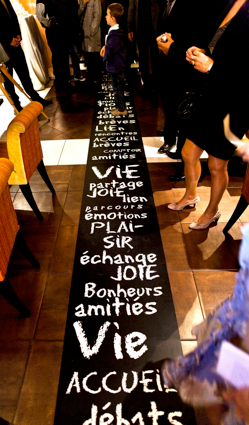 débats
brèves
LIEn
rencontres
ACCUEIL
brèves
COMPTOIR
amitiés
VIE
partage
JOIE lien
parcours
émotions
PLAI-
SIR
échange
JOIE
Bonheurs
amitiés
Vie
ACCUEIL
débats